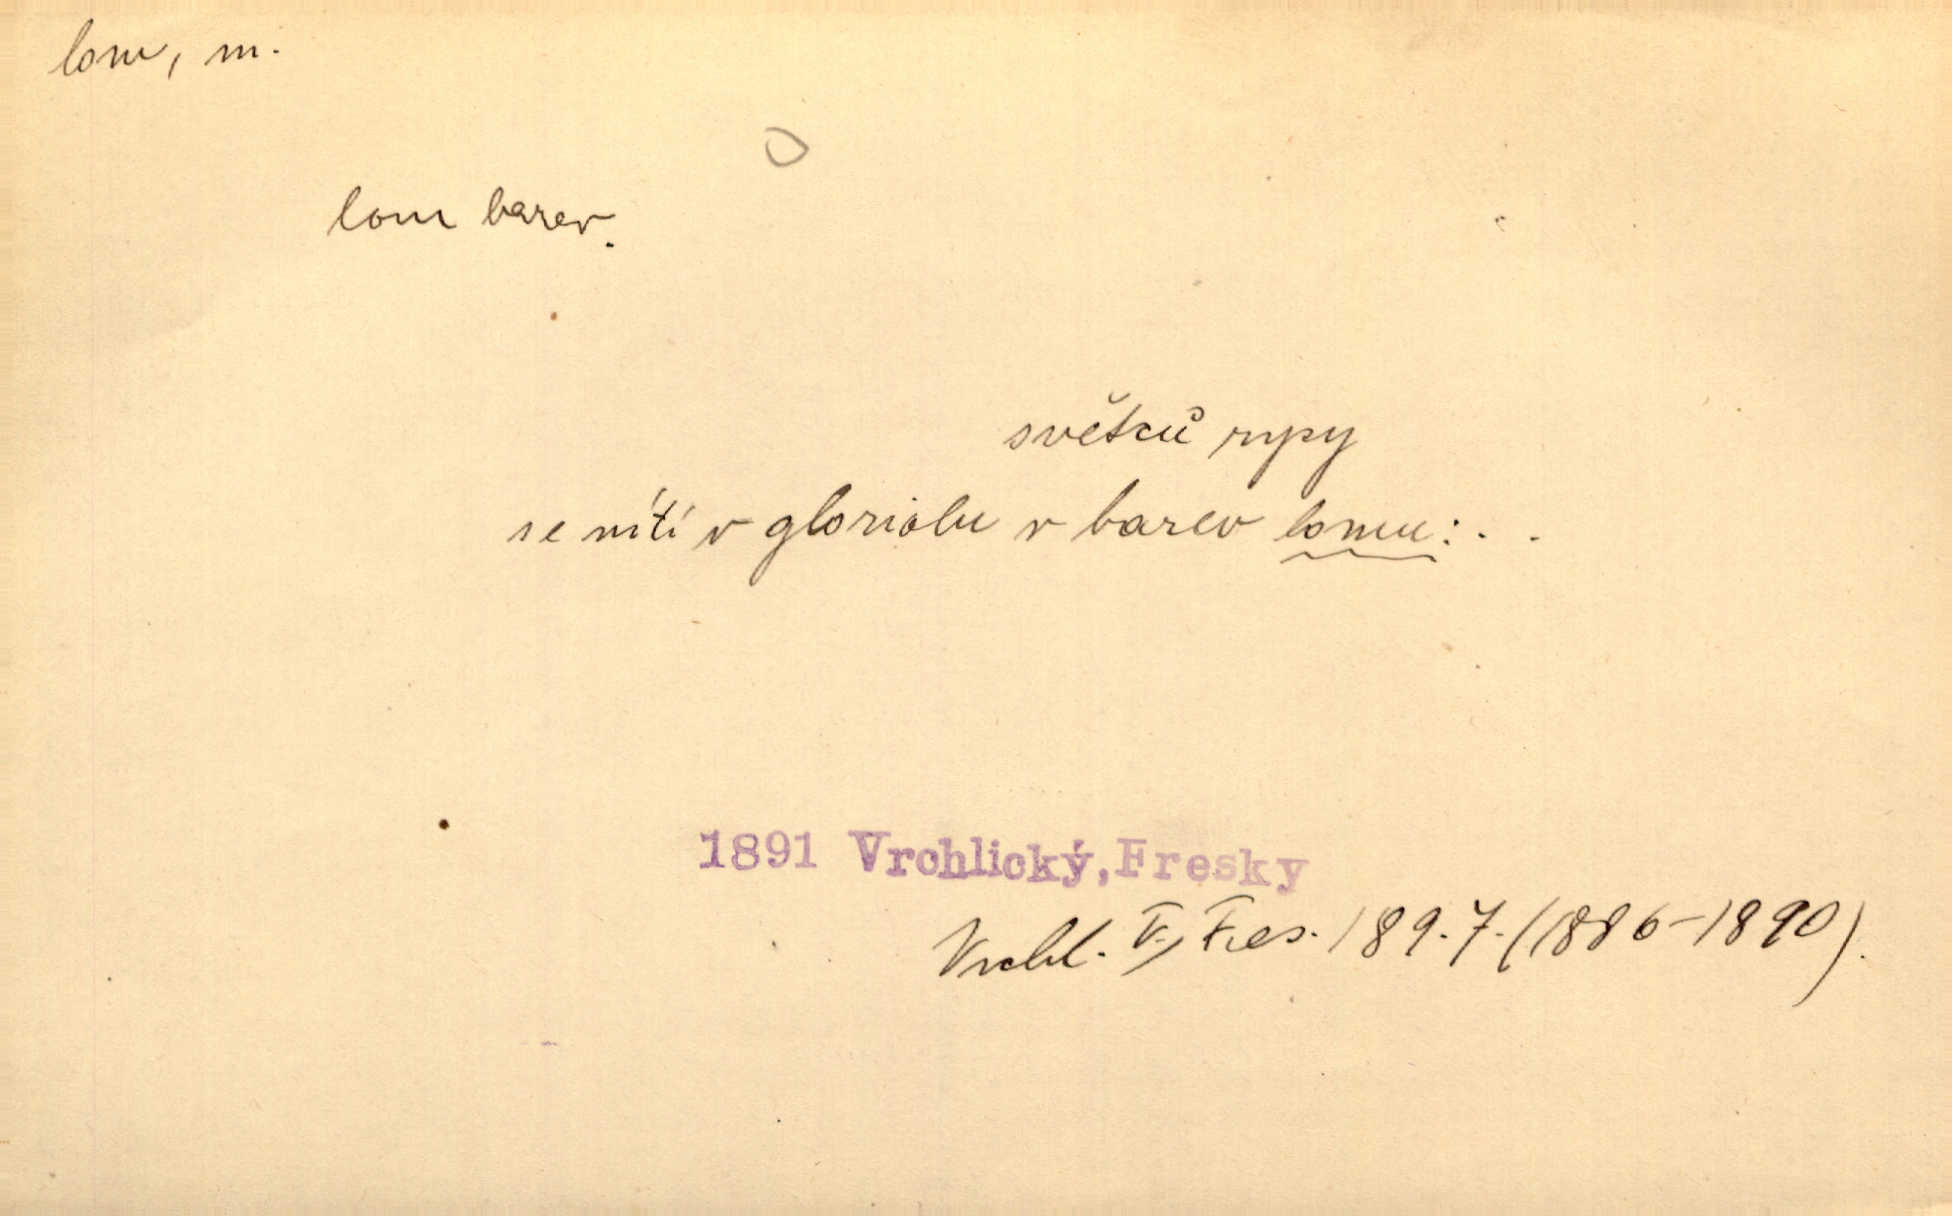 lom, m.
lom barev.
světců rysy
se nítí v gloriolu v barev lomu: . .
1891 Vrchlický, Fresky
Vrchl. V., Fres. 189. 7. (1886-1890).